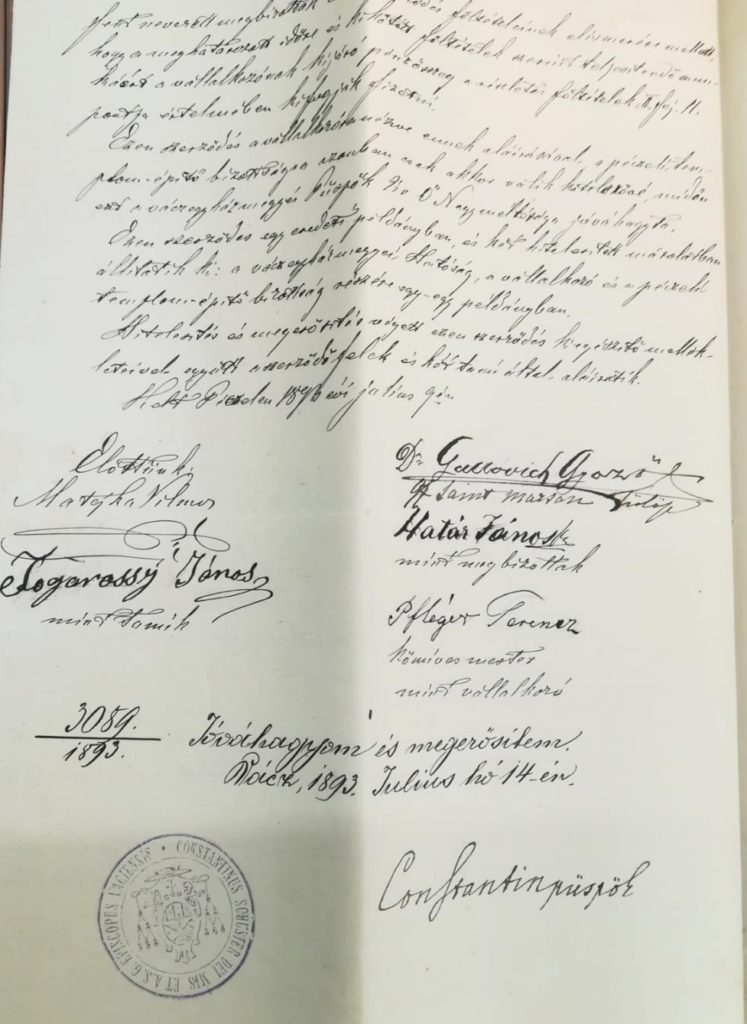 fent nevezett megbizottak
elismerése mellett,
hogy a meghatározott időre és kikötött föltételek szerint teljesitendő mun-
káért a vállalkozónak kijáró pénzösszeg a részletes föltételek II. fej. 11.
pontja értelmében kifogják fizetni.
Ezen szerződés a vállalkozóra nézve ennek aláirásával, a péczeli tem-
plom-épitő bizottságra azonban csak akkor válik kötelezővé, midőn
ezt a váczegyházmegyei Püspök Úr Ő Nagyméltósága jóváhagyta.
Ezen szerződés egy eredeti példányban, és két hitelesitett másolatban
állitatik ki: a váczegyházmegyei Hatóság, a vállalkozó és a péczeli
templom-épitő bizottság részére egy-egy példányban.
Hitelesités és megerősités végett ezen szerződés kiegészitő mellék-
leteivel együtt a szerződő felek és két tanú által aláiratik.
Kelt Péczelen 1893 évi július 9én
Előttünk:
Matejka Vilmos
Fogarassy János
mint tanúk
Dr Gallovich Gyozső
Saint marsan Fülöp
Határ János
mint megbizottak
Pfléger Ferencz
kőmives mester
mint vállalkozó
3089.
1893.
Jóváhagyom és megerősitem.
Vácz, 1893. Julius hó 14-én.
Constantin püspök
CONSTANTINUS SCHUSTER DEI MIS ET A. S. G. EPISCOPUS VACIENSIS